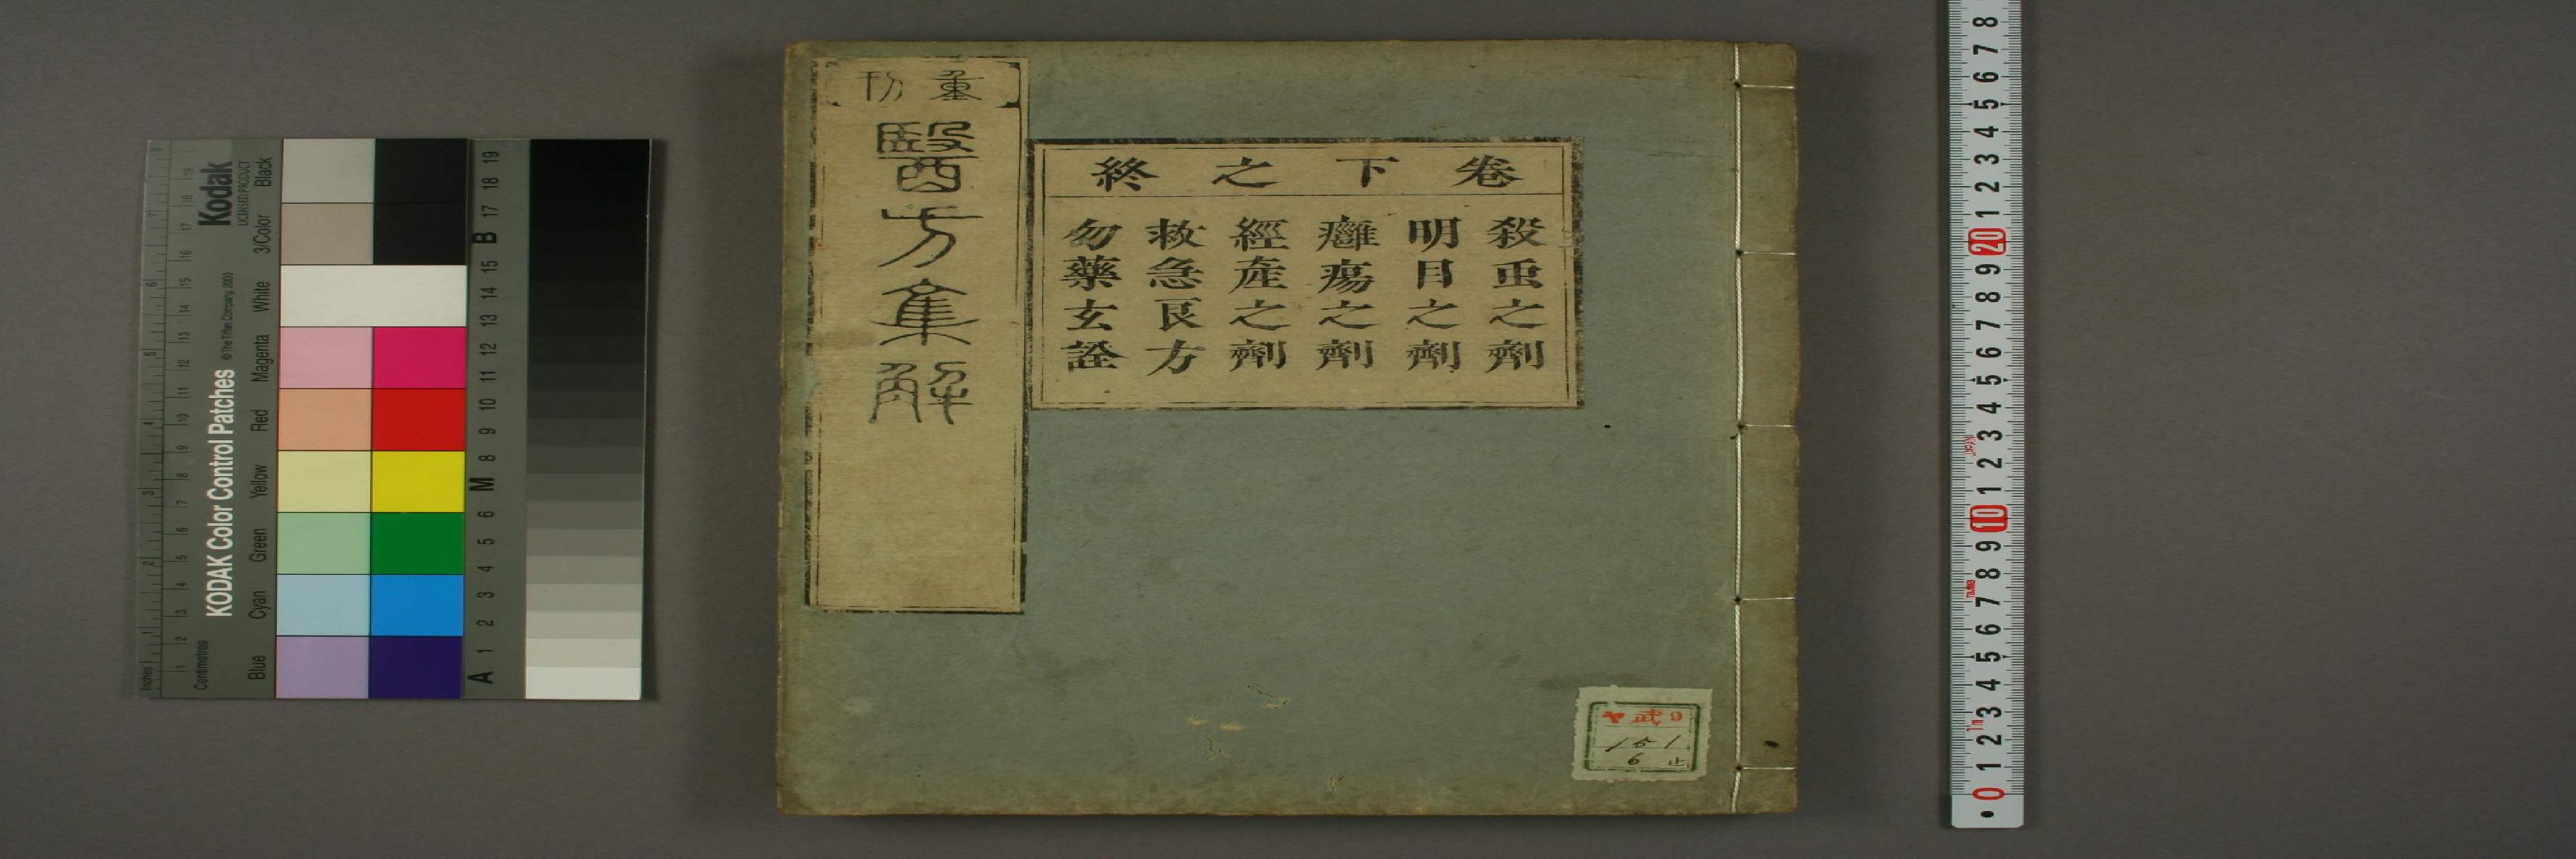 重刊
醫方集解
卷下之終
殺虫之劑
明目之劑
癰瘍之劑
經產之劑
救急良方
勿藥玄詮
武9
151
6
止
KODAK Color Control Patches
© The Tiffen Company, 2000
Kodak
LICENSED PRODUCT
Inches
Centimetres
Blue
Cyan
Green
Yellow
Red
Magenta
White
3/Color
Black
A 1 2 3 4 5 6 M 8 9 10 11 12 13 14 15 B 17 18 19
0 1 2 3 4 5 6 7 8 9 10 1 2 3 4 5 6 7 8 9 20 1 2 3 4 5 6 7 8